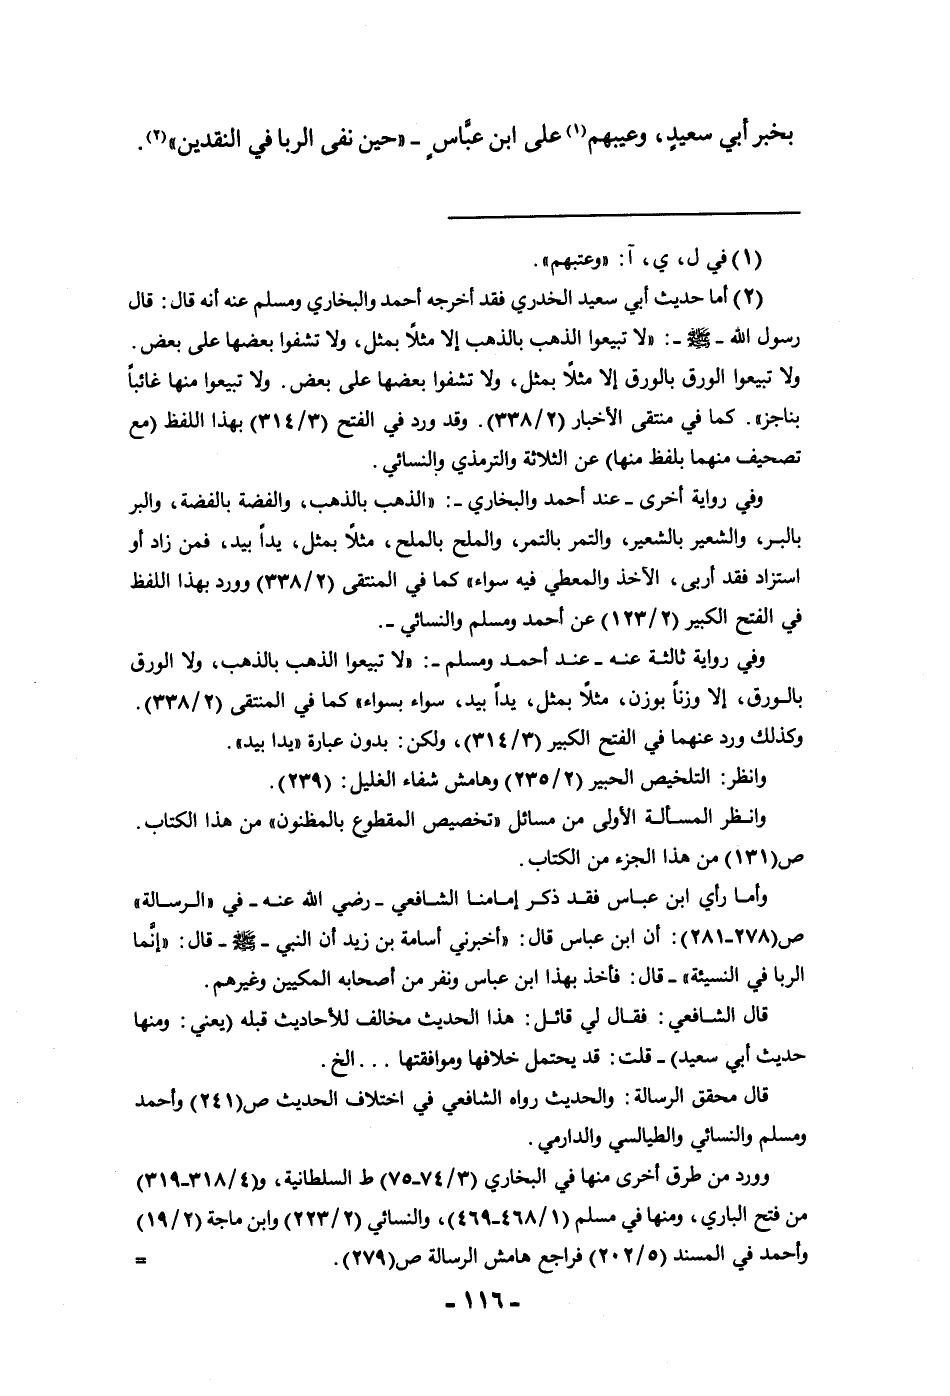 بخبر أبي سعيدٍ، وعيبهم(١) على ابن عبَّاسٍ ـ «حين نفى الربا في النقدين»(٢).
(١) في ل، ي، آ: «وعتبهم».
(٢) أما حديث أبي سعيد الخدري فقد أخرجه أحمد والبخاري ومسلم عنه أنه قال: قال
رسول الله ـ ﷺ ـ: «لا تبيعوا الذهب بالذهب إلا مثلاً بمثل، ولا تشفوا بعضها على بعض.
ولا تبيعوا الورق بالورق إلا مثلاً بمثل، ولا تشفوا بعضها على بعض. ولا تبيعوا منها غائباً
بناجز». كما في منتقى الأخبار (٣٣٨/٢). وقد ورد في الفتح (٣١٤/٣) بهذا اللفظ (مع
تصحيف منهما بلفظ منها) عن الثلاثة والترمذي والنسائي.
وفي رواية أخرى ـ عند أحمد والبخاري ـ: «الذهب بالذهب، والفضة بالفضة، والبر
بالبر، والشعير بالشعير، والتمر بالتمر، والملح بالملح، مثلاً بمثل، يداً بيد، فمن زاد أو
استزاد فقد أربى، الآخذ والمعطي فيه سواء» كما في المنتقى (٣٣٨/٢) وورد بهذا اللفظ
في الفتح الكبير (١٢٣/٢) عن أحمد ومسلم والنسائي ـ.
وفي رواية ثالثة عنه ـ عند أحمد ومسلم ـ: «لا تبيعوا الذهب بالذهب، ولا الورق
بالورق، إلا وزناً بوزن، مثلاً بمثل، يداً بيد، سواء بسواء» كما في المنتقى (٣٣٨/٢).
وكذلك ورد عنهما في الفتح الكبير (٣١٤/٣)، ولكن: بدون عبارة «يدا بيد».
وانظر: التلخيص الحبير (٢٣٥/٢) وهامش شفاء الغليل: (٢٣٩).
وانظر المسألة الأولى من مسائل «تخصيص المقطوع بالمظنون» من هذا الكتاب.
ص(١٣١) من هذا الجزء من الكتاب.
وأما رأي ابن عباس فقد ذكر إمامنا الشافعي ـ رضي الله عنه ـ في «الرسالة»
ص(٢٧٨ـ٢٨١): أن ابن عباس قال: «أخبرني أسامة بن زيد أن النبي ـ ﷺ ـ قال: «إنَّما
الربا في النسيئة» ـ قال: فأخذ بهذا ابن عباس ونفر من أصحابه المكيين وغيرهم.
قال الشافعي: فقال لي قائل: هذا الحديث مخالف للأحاديث قبله (يعني: ومنها
حديث أبي سعيد) ـ قلت: قد يحتمل خلافها وموافقتها ... الخ.
قال محقق الرسالة: والحديث رواه الشافعي في اختلاف الحديث ص(٢٤١) وأحمد
ومسلم والنسائي والطيالسي والدارمي.
وورد من طرق أخرى منها في البخاري (٧٤/٣ـ٧٥) ط السلطانية، و(٣١٨/٤ـ٣١٩)
من فتح الباري، ومنها في مسلم (٤٦٨/١ـ٤٦٩)، والنسائي (٢٢٣/٢) وابن ماجة (١٩/٢)
وأحمد في المسند (٢٠٢/٥) فراجع هامش الرسالة ص(٢٧٩). =
ـ ١١٦ ـ